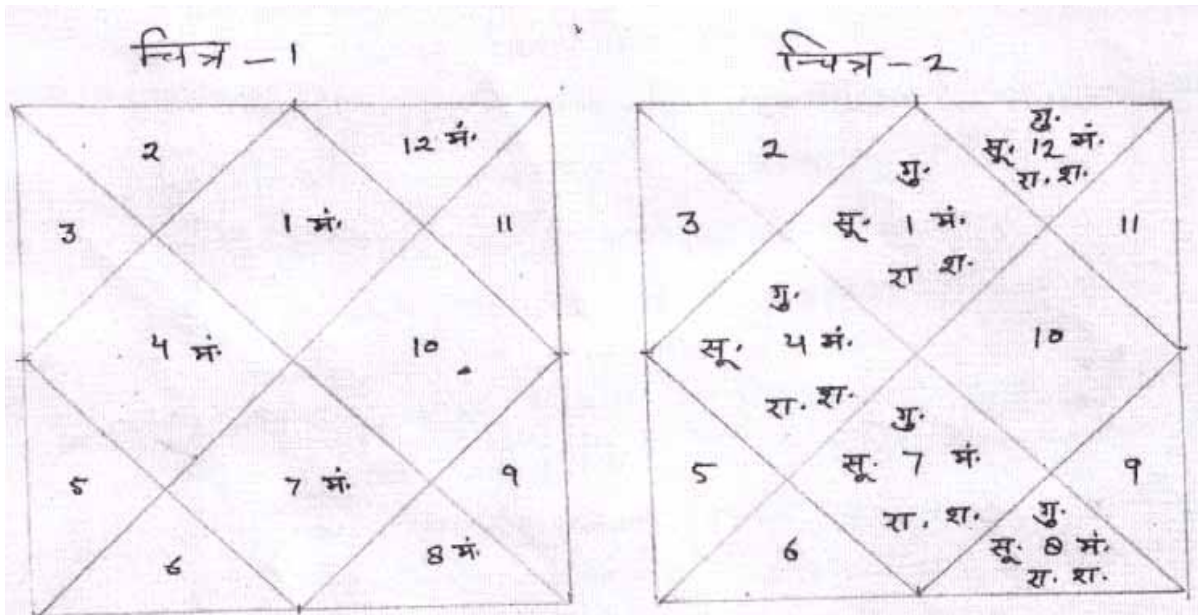 चित्र - 1
2
12 मं.
3
1 मं.
11
4 मं.
10
5
7 मं.
9
6
8 मं.
चित्र - 2
2
गु.
सू. 12 मं.
रा. श.
3
गु.
सू. 1 मं.
रा श.
11
गु.
सू. 4 मं.
रा. श.
10
5
गु.
सू. 7 मं.
रा. श.
9
6
गु.
सू. 8 मं.
रा. श.